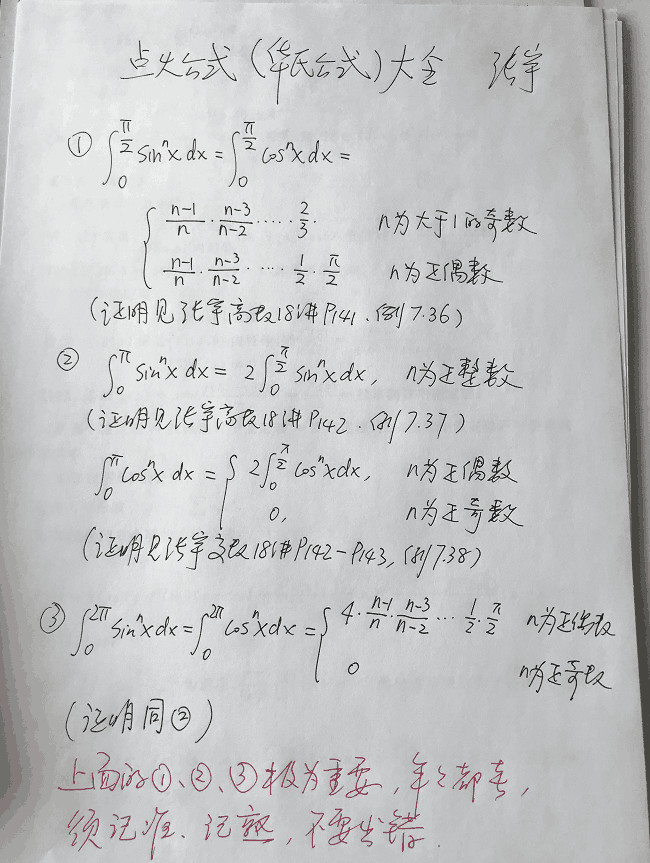 点火公式(华氏公式)大全 张宇
① ∫₀^{π/2} sinⁿx dx = ∫₀^{π/2} cosⁿx dx =
{ (n-1)/n · (n-3)/(n-2) · ⋯ · 2/3 · n为大于1的奇数
(n-1)/n · (n-3)/(n-2) · ⋯ · 1/2 · π/2 n为正偶数
(证明见张宇高数18讲P141、例7.36)
② ∫₀^π sinⁿx dx = 2∫₀^{π/2} sinⁿx dx, n为正整数
(证明见张宇高数18讲P142、例7.37)
∫₀^π cosⁿx dx = { 2∫₀^{π/2} cosⁿx dx, n为正偶数
0, n为正奇数
(证明见张宇高数18讲P142-P143, 例7.38)
③ ∫₀^{2π} sinⁿx dx = ∫₀^{2π} cosⁿx dx = { 4 · (n-1)/n · (n-3)/(n-2) ⋯ 1/2 · π/2 n为正偶数
0 n为正奇数
(证明同②)
上面的①、②、③极为重要,年年都考,
须记准、记熟,不要出错.